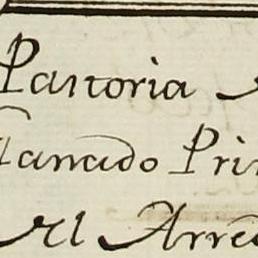 Pastoria
Ganado Pri
El Arre